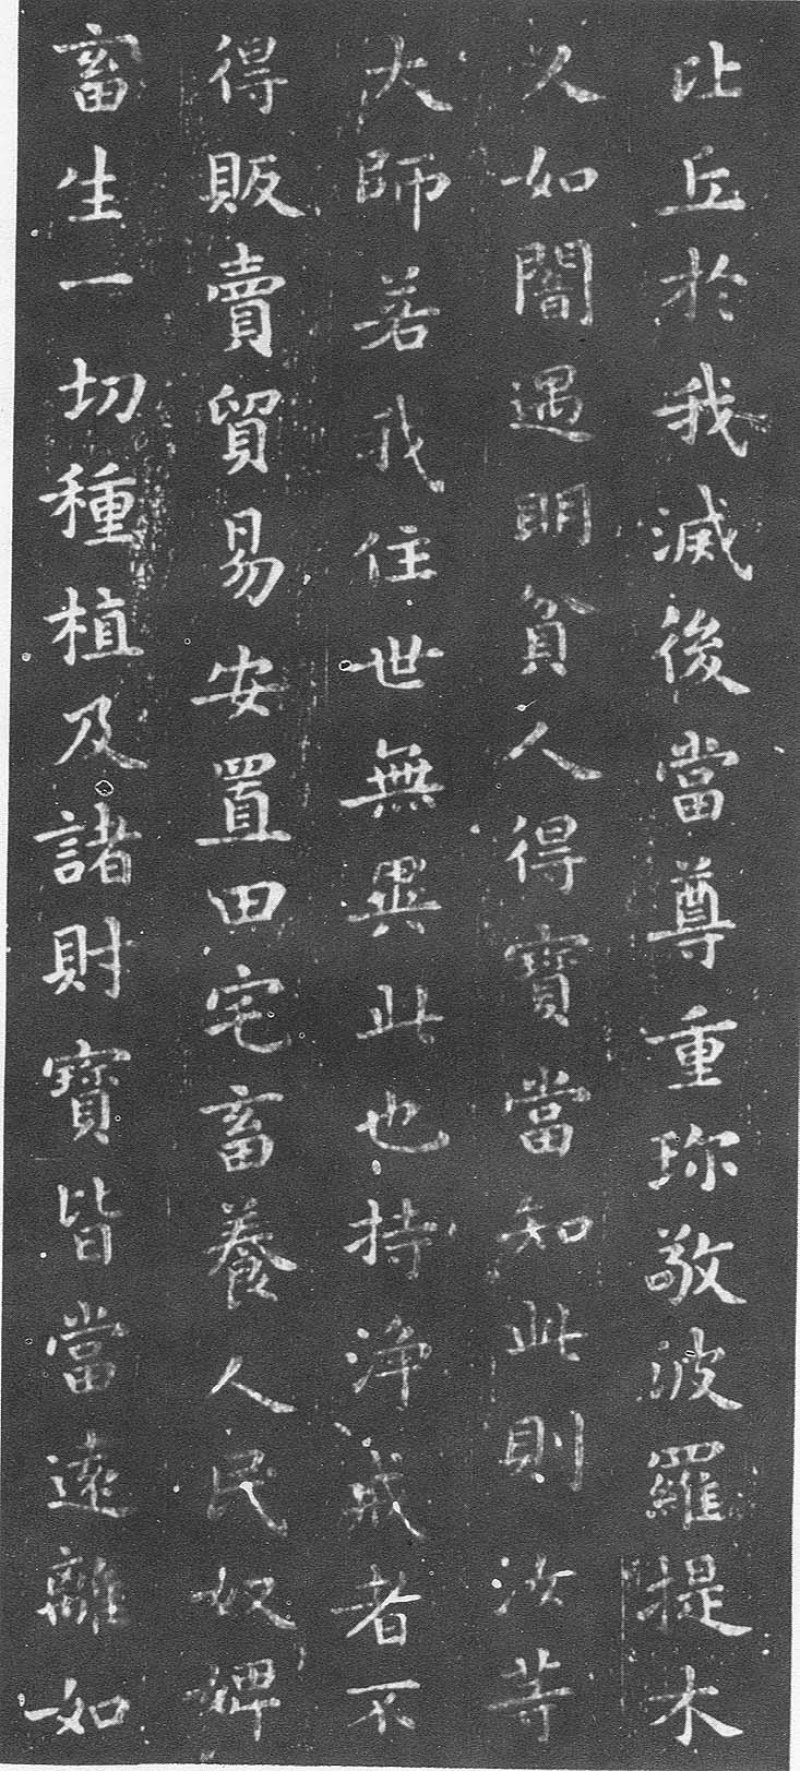 比丘於我滅後當尊重珎敬波羅提木
人如闇遇明貧人得寶當知此則汝等
大師若我住世無異此也持淨戒者不
得販賣貿易安置田宅畜養人民奴婢
畜生一切種植及諸財寶皆當遠離如